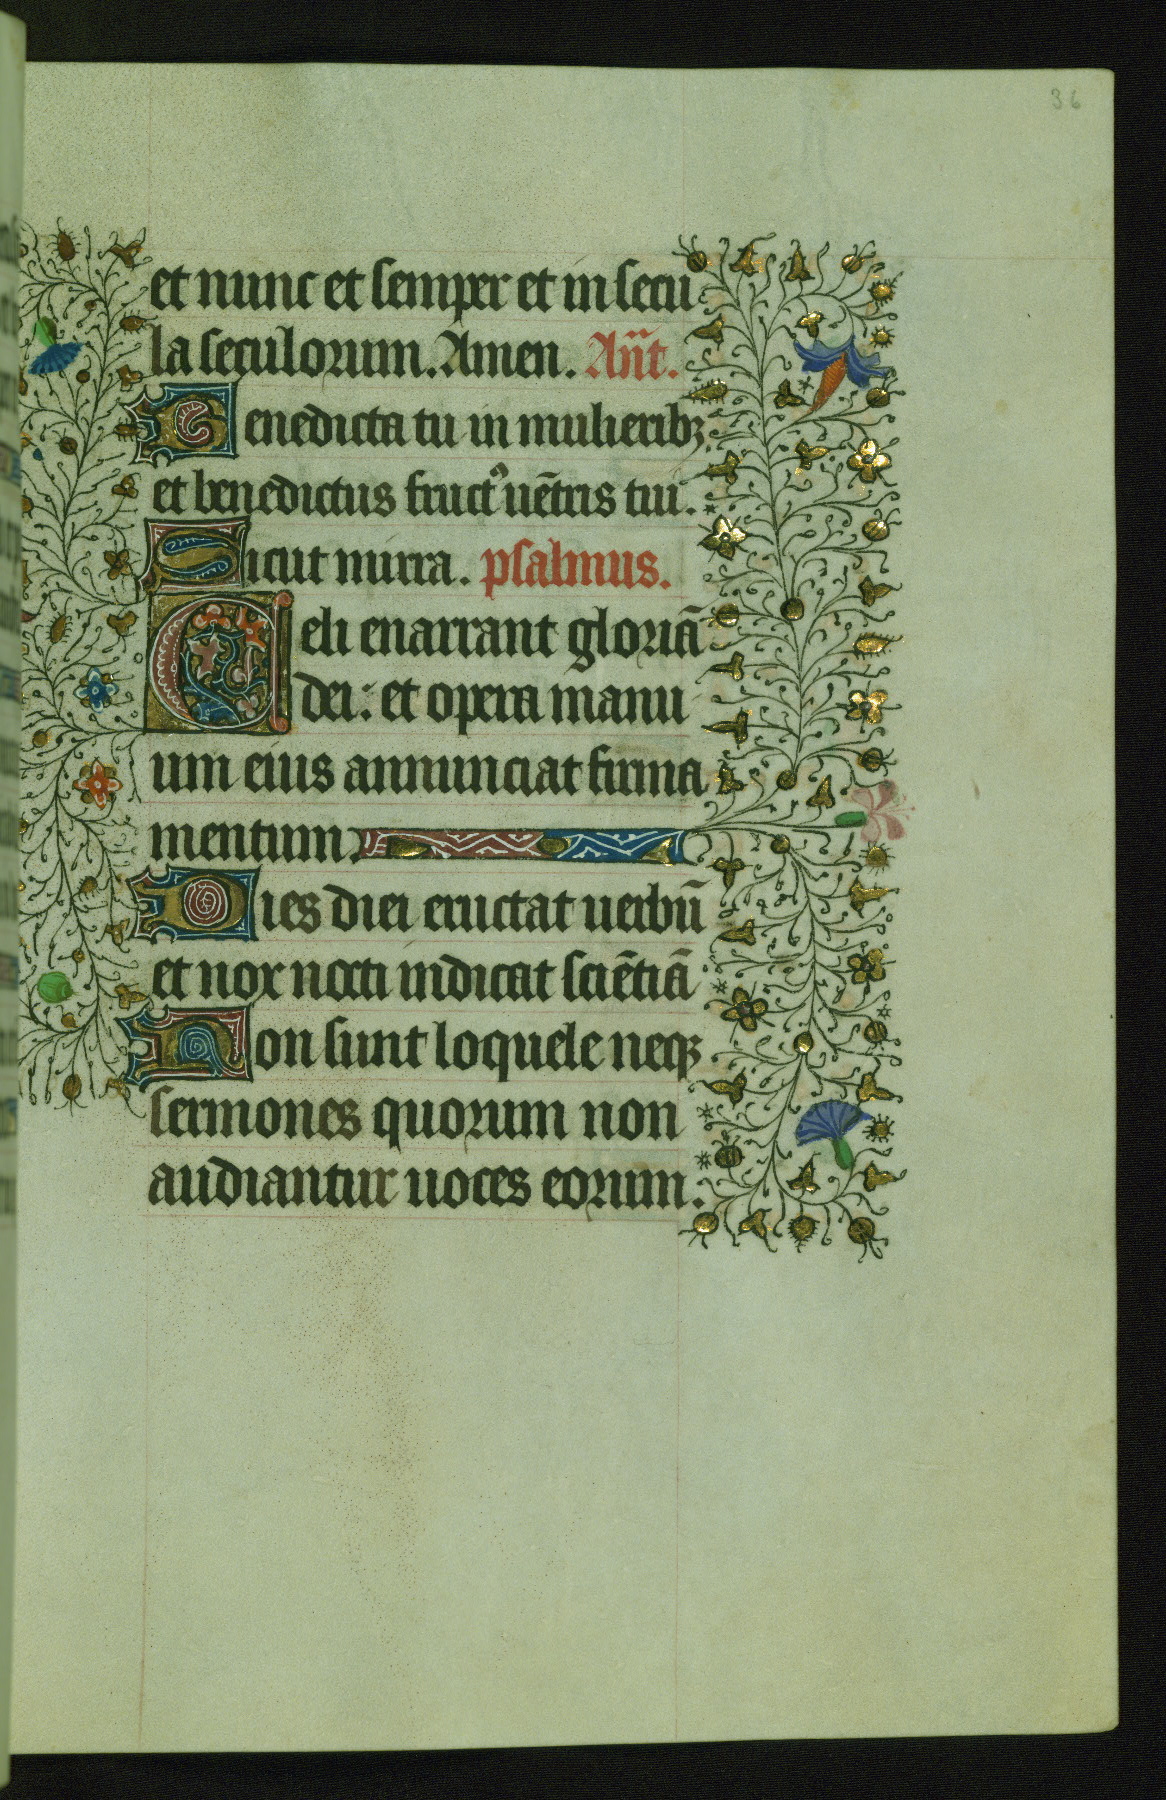 36
et nunc et semper et in secu
la seculorum. Amen. Añt.
Benedicta tu in mulieribꝫ
et benedictus fructꝰ uētris tui.
Sicut mirra. psalmus.
Celi enarrant gloriā
dei: et opera manu
um eius annunciat firma
mentum.
Dies diei eructat uerbū
et nox nocti indicat sciētiā
Non sunt loquele neqꝫ
sermones quorum non
audiantur uoces eorum.